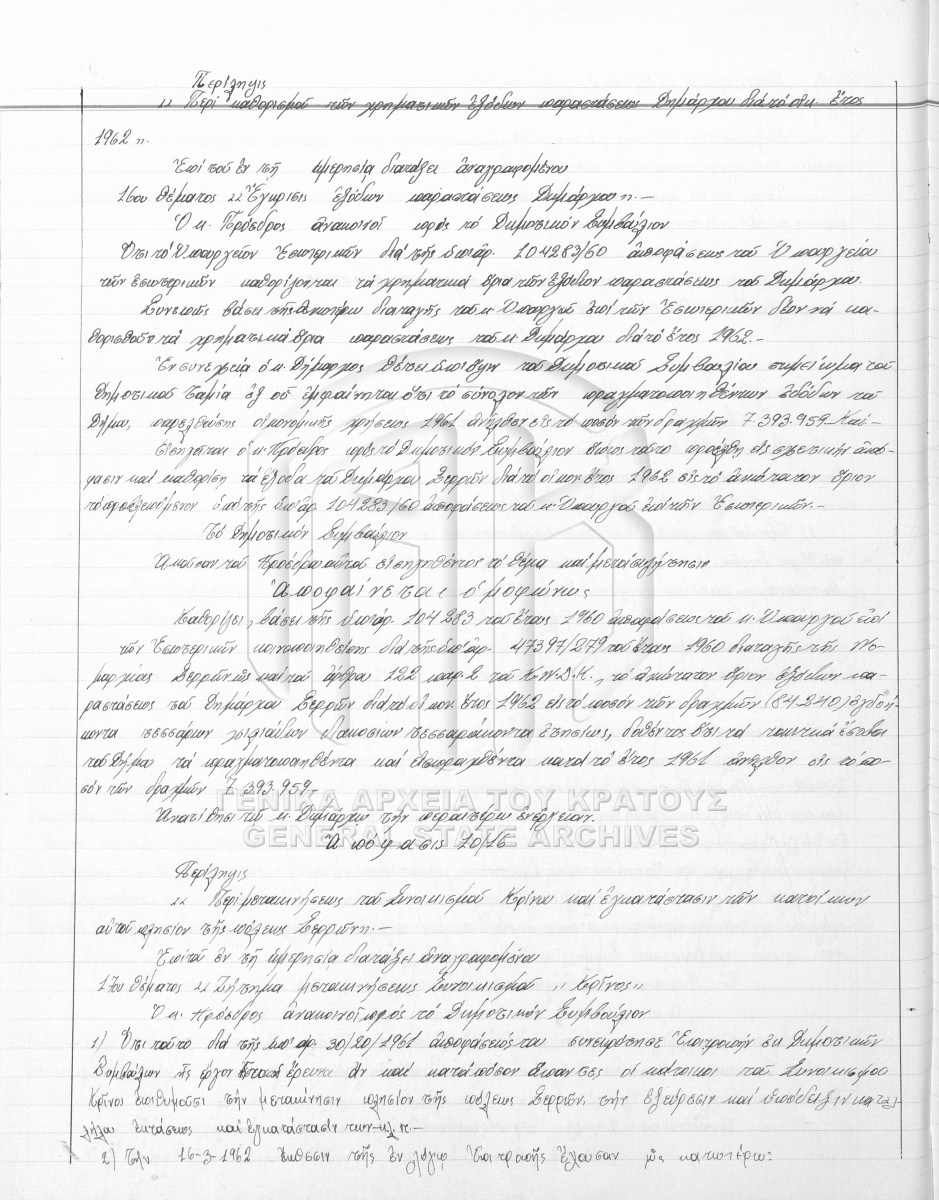 Περίληψις
"Περί καθορισμού τῶν χρηματικῶν ἐξόδων παραστάσεως Δημάρχου διά τό οἰκ. ἔτος
1962".
Ἐπί τοῦ ἐν τῇ ἡμερησίᾳ διατάξει ἀναγραφομένου
16ου θέματος "Ἔγκρισις ἐξόδων παραστάσεως Δημάρχου".-
Ὁ κ. Πρόεδρος ἀνακοινοῖ πρός τό Δημοτικόν Συμβούλιον
Ὅτι τό Ὑπουργεῖον Ἐσωτερικῶν διά τῆς ὑπ' ἀρ. 104283/60 ἀποφάσεως τοῦ Ὑπουργείου
τῶν Ἐσωτερικῶν καθορίζονται τά χρηματικά ὅρια τῶν ἐξόδων παραστάσεως τοῦ Δημάρχου.
Συνεπῶς βάσει τῆς διαταγῆς τοῦ κ. Ὑπουργοῦ ἐπί τῶν Ἐσωτερικῶν δέον νά κα-
θορισθοῦν τά χρηματικά ὅρια παραστάσεως τοῦ κ. Δημάρχου διά τό ἔτος 1962.-
Ἐν συνεχείᾳ ὁ κ. Δήμαρχος θέτει ὑπ' ὄψιν τοῦ Δημοτικοῦ Συμβουλίου σημείωμα τοῦ
Δημοτικοῦ Ταμία ἐξ οὗ ἐμφαίνηται ὅτι τό σύνολον τῶν πραγματοποιηθέντων ἐσόδων τοῦ
Δήμου, παρελθούσης οἰκονομικῆς χρήσεως 1961 ἀνῆλθεν εἰς τό ποσόν τῶν δραχμῶν 7.393.959 Καί-
Εἰσηγεῖται ὁ κ. Πρόεδρος πρός τό Δημοτικόν Συμβούλιον ὅπως τοῦτο προέλθῃ εἰς σχετικήν ἀπό-
φασιν καί καθορίσῃ τά ἔξοδα τοῦ Δημάρχου Σερρῶν διά τό οἰκον. ἔτος 1962 εἰς τό ἀνώτατον ὅριον
τό προβλεπόμενον ὑπό τῆς ὑπ' ἀρ. 104283/60 ἀποφάσεως τοῦ κ. Ὑπουργοῦ ἐπί τῶν Ἐσωτερικῶν.-
Τό Δημοτικόν Συμβούλιον
Ἀκοῦσαν τοῦ Προέδρου αὐτοῦ εἰσηγηθέντος τό θέμα καί μετά συζήτησιν
Ἀποφαίνεται ὁμοφώνως
Καθορίζει, βάσει τῆς ὑπ' ἀρ. 104283 τοῦ ἔτους 1960 ἀποφάσεως τοῦ κ. Ὑπουργοῦ ἐπί
τῶν Ἐσωτερικῶν κοινοποιηθείσης διά τῆς ὑπ' ἀρ. 47397/279 τοῦ ἔτους 1960 διαταγῆς τῆς Νο-
μαρχίας Σερρῶν ὡς καί τοῦ ἄρθρου 122 παρ. 2 τοῦ Κ.Ν.Δ.Κ., τό ἀνώτατον ὅριον ἐξόδων πα-
ραστάσεως τοῦ Δημάρχου Σερρῶν διά τό οἰκον. ἔτος 1962 εἰς τό ποσόν τῶν δραχμῶν (84.240) ὀγδοή-
κοντα τεσσάρων χιλιάδων διακοσίων τεσσαράκοντα ἐτησίως, δοθέντος ὅτι τά τακτικά ἔσοδα
τοῦ Δήμου τά πραγματοποιηθέντα καί εἰσπραχθέντα κατά τό ἔτος 1961 ἀνῆλθον εἰς τό πο-
σόν τῶν δραχμῶν 7.393.959.-
Ἀνατίθησι τῷ κ. Δημάρχῳ τήν περαιτέρω ἐνέργειαν.
ΓΕΝΙΚΑ ΑΡΧΕΙΑ ΤΟΥ ΚΡΑΤΟΥΣ
GENERAL STATE ARCHIVES
Ἀπόφασις 10/16
Περίληψις
"Περί μετακινήσεως τοῦ Συνοικισμοῦ Κρίνου καί ἐγκατάστασιν τῶν κατοίκων
αὐτοῦ πλησίον τῆς πόλεως Σερρῶν".-
Ἐπί τοῦ ἐν τῇ ἡμερησίᾳ διατάξει ἀναγραφομένου
17ου θέματος "Ζήτημα μετακινήσεως Συνοικισμοῦ "Κρῖνος"
Ὁ κ. Πρόεδρος ἀνακοινοῖ πρός τό Δημοτικόν Συμβούλιον
1) Ὅτι τοῦτο διά τῆς ὑπ' ἀρ. 30/20/1961 ἀποφάσεώς του συνεκρότησε Ἐπιτροπήν ἐκ Δημοτικῶν
Συμβούλων ἧς ἔργον ἔρευνα ἄν καί κατά πόσον ἅπαντες οἱ κάτοικοι τοῦ Συνοικισμοῦ
Κρῖνος ἐπιθυμοῦσι τήν μετακίνησιν πλησίον τῆς πόλεως Σερρῶν, τήν ἐξεύρεσιν καί ὑπόδειξιν καταλ-
λήλου ἐκτάσεως καί ἐγκατάστασίν των κ.λ.π.-
2) Τήν 16-3-1962 ἔκθεσιν τῆς ἐν λόγῳ Ἐπιτροπῆς ἔχουσαν ὡς κατωτέρω: